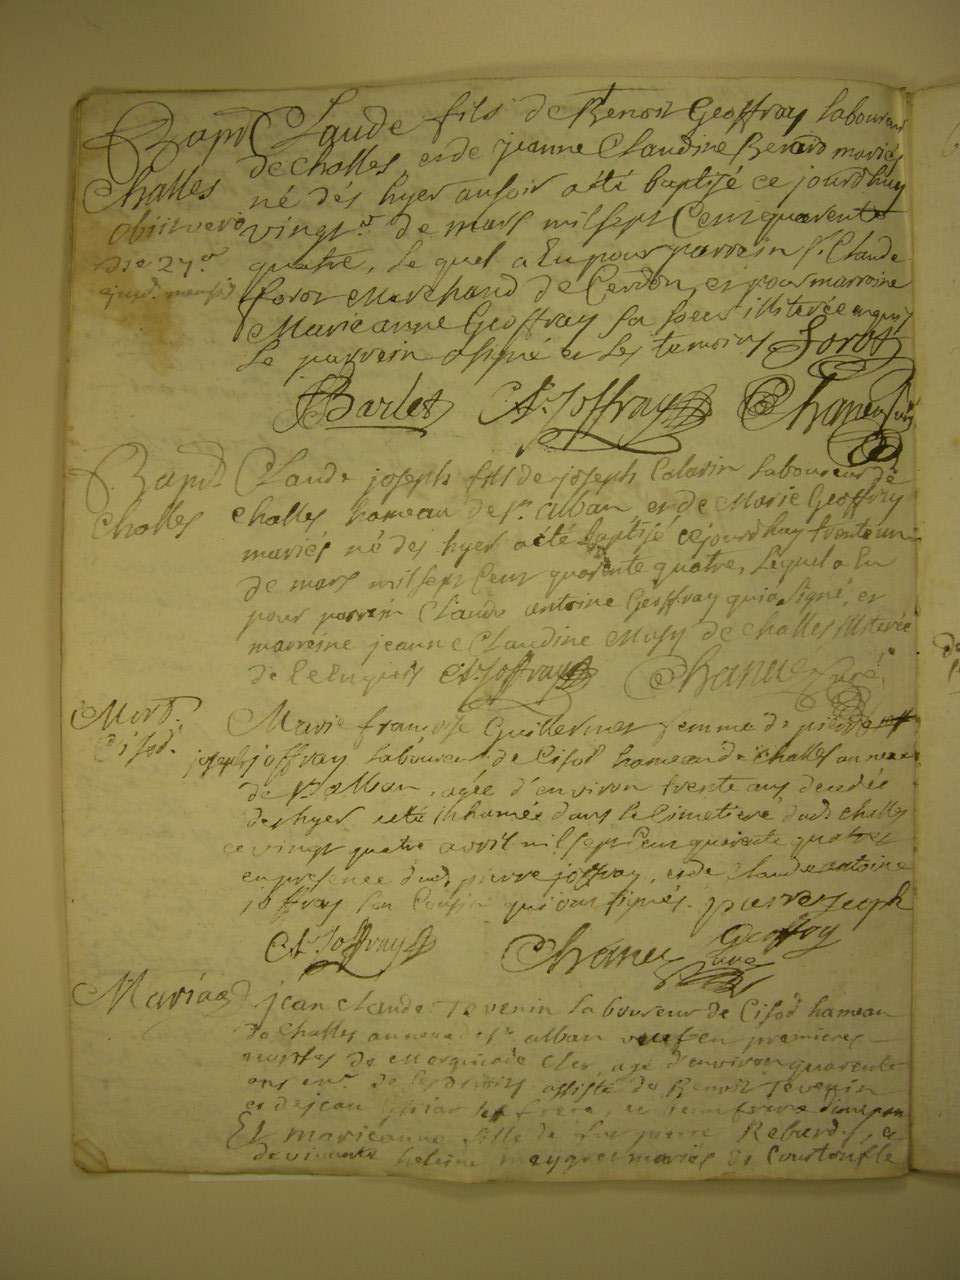 Bapt Claude fils de Benoit Geoffray laboureur
Challes de Challes, et de jeanne Claudine Berard mariés
né dés hyer au soir a été baptisé ce jourd'huy
obiit vero vingt de mars mil sept Cent quarente
die 27 quatre, le quel a Eu pour parrein Sr. Claude
forot Marchand de Cerdon, et pour marreine
Marie anne Geoffray sa soeur illiterée enquis
le parrein a signé et les temoins Forot
Barlet Cl. Joffray Chanel Curé
Bapt Claude joseph fils de joseph Calarin laboureur de
Challes Challes hameau de St. alban et de Marie Geoffray
mariés né des hyer a été baptisé ce jourd'huy trente un
de mars mil sept Cent quarente quatre, lequel a Eu
pour parrein Claude antoine Geoffray qui a signé, et
marreine jeanne Claudine Musy de Challes illiterée
de ce Enquis Cl. Joffray Chanel Curé
Mort. Marie françoise Guillermet femme de pierre
Cisod. joseph joffray laboureur de Cisod hameau de Challes annexe
de St. alban, agée d'environ trente ans decedée
des hyer a été inhumée dans le Cimetiere dud. Challes
ce vingt quatre avril mil sept Cent quarente quatre
en presence dud. pierre joffray, et de Claude antoine
joffray son Cousin qui ont signés. pierre joseph
Cl. Joffray Chanel Geoffroy
Curé
Mariage jean Claude Tevenin laboureur de Cisod hameau
de Challes annexe de St. alban veuf en premieres
nopces de agé d'environ quarente
ans de ses droits assisté de Benoit Tevenin
et de jean son frere,
Et marie anne fille de feu pierre Rebard, et
de vivante heleine maygret mariés de